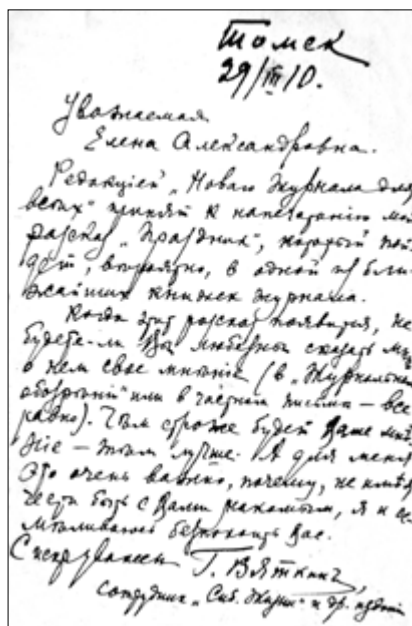 Томск
29/III 10.
Уважаемая
Елена Александровна.
Редакцiей „Новаго Журнала для
всѣхъ" принят к напечатанiю мой
разсказ „Праздник", который пой-
дет, вѣроятно, в одной из бли-
жайших книжек журнала.
Когда этот разсказ появится, не
будете-ли Вы любезны сказать мнѣ
о нем свое мнѣнiе (в „Журнальном
обозрѣнiи" или в частном письмѣ – все
равно). Чѣм строже будет Ваше мнѣ-
нiе – тѣм лучше. А для меня
это очень важно, почему, не имѣя
чести быть с Вами знакомым, я и ос-
мѣливаюсь безпокоить Вас.
С искр. уважен. Г. Вяткин,
сотрудник „Сиб. Жизни" и др. изданiй